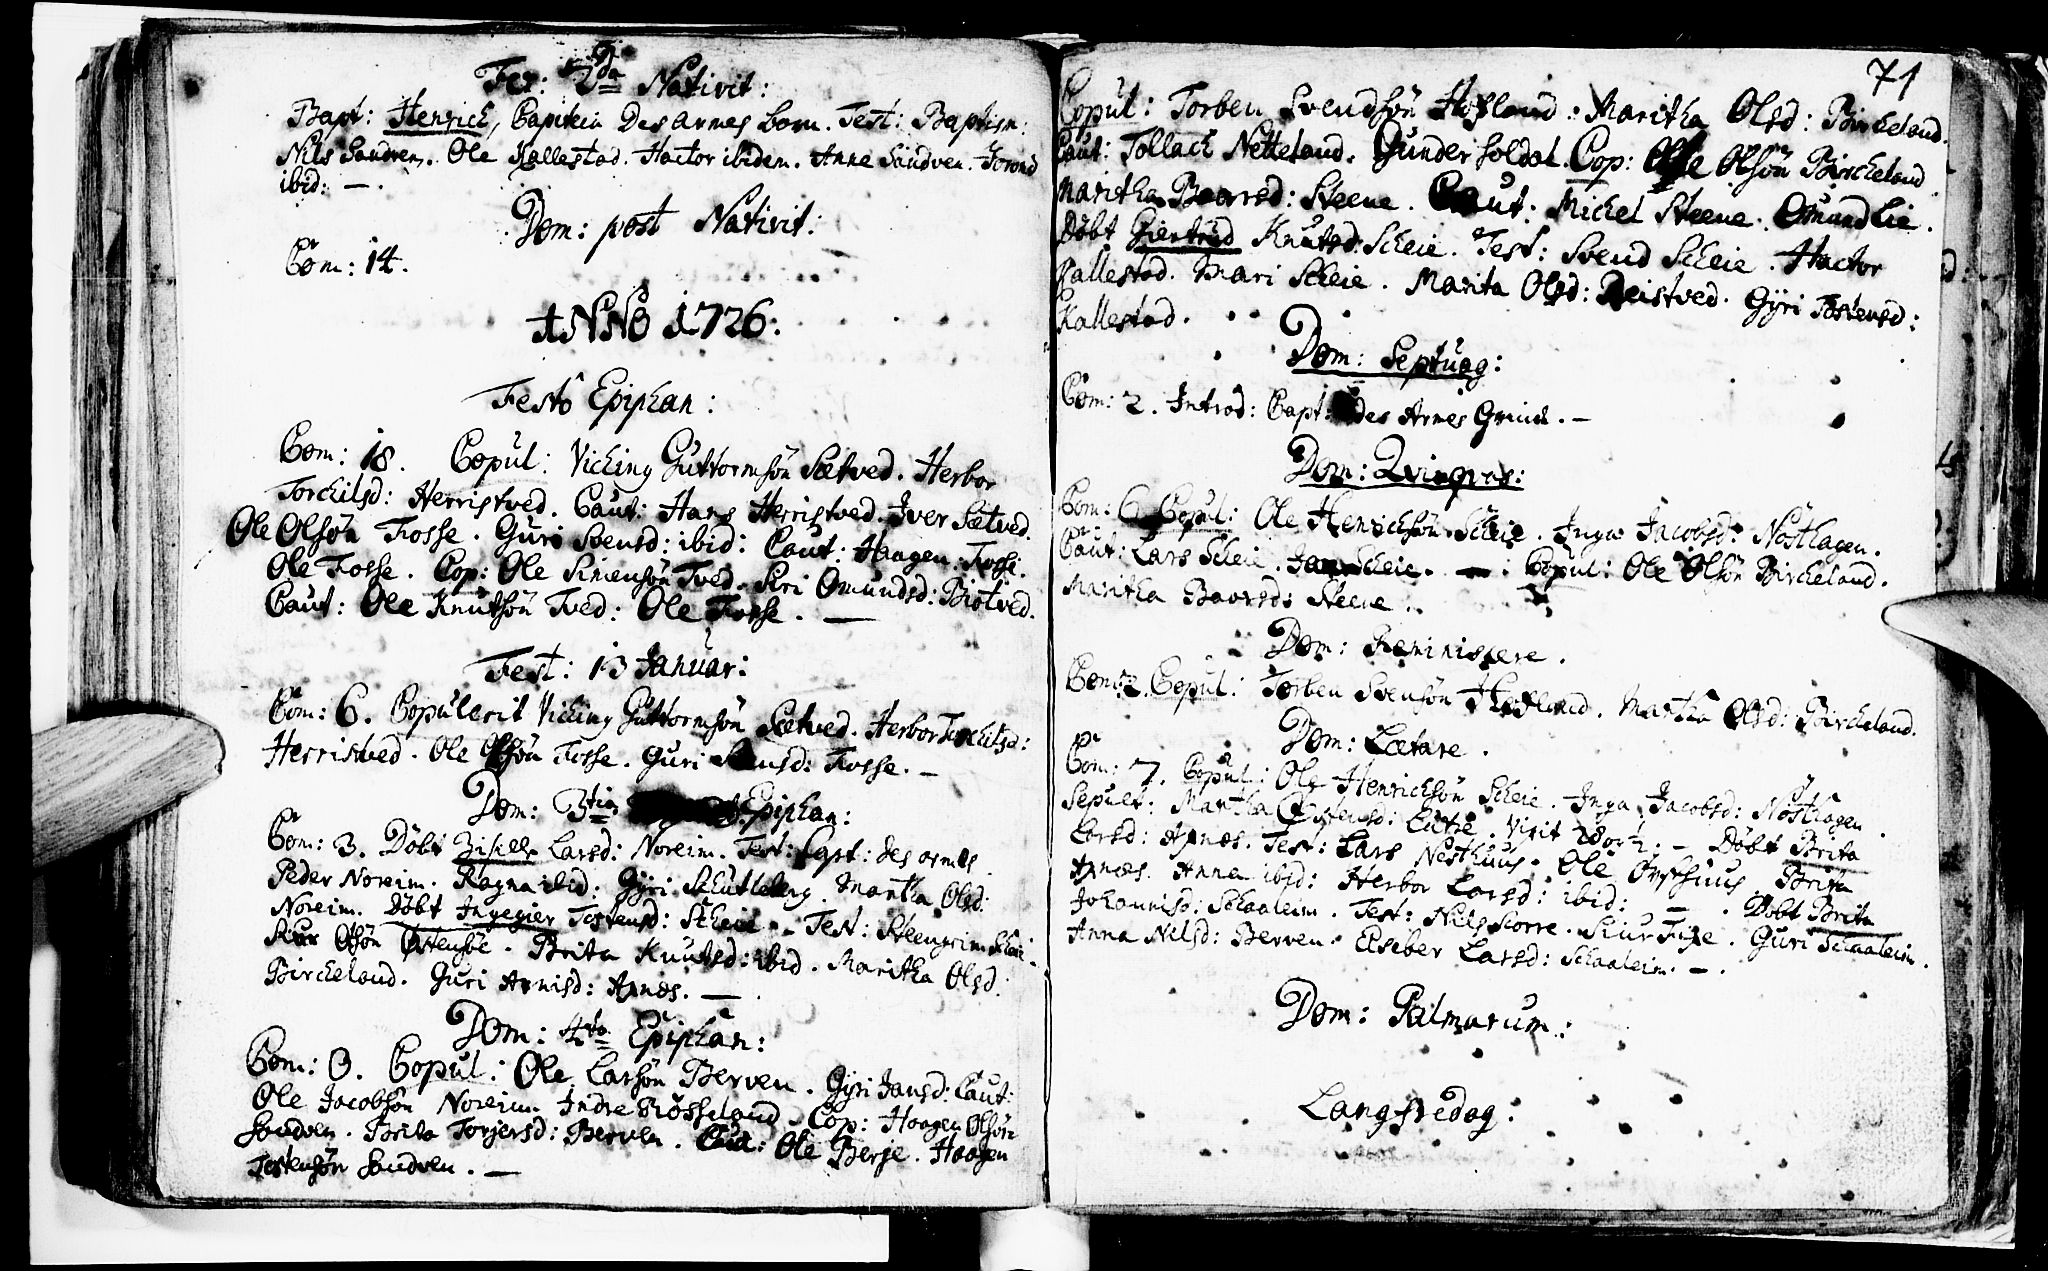 Fer: 2da Nativit:
Bapt: Henrich, Capitein Des Armes born. Test: Baptism:
Nils Sandven. Ole Kallestad. Hactor ibidem. Anne Sandven. Jorond
ibid: —.
Dom: post Nativit:
Com: 14.
ANNO 1726:
Festo Epiphan:
Com: 18. Copul: Viching Guttormsön Sætved. Herbor
Torchilsd: Herristved. Caut: Hans Herristved. Iver Sætved.
Ole Olsön Fosse. Guri Svensd: ibid: Caut: Haagen Fosse.
Ole Fosse. Cop: Ole Simensön Tved. Siri Omundsd: Biotved.
Caut: Ole Knutsön Tved: Ole Fosse. —
Fest: 13 Januar:
Com: 6. Copulerit Viching Guttormsön Sætved. Herbor Torchilsd:
Herristved. Ole Olsön Fosse. Guri Svensd: Fosse. —
Dom: 3tia Epiphan:
Com: 3. Döbt Zisele Larsd: Noreim. Test: Capt: des armes
Peder Noreim. Ragna ibid. Gÿri Skutleberg. Martha Olsd:
Noreim. Döbt Ingegier Tostensd: Scheie. – Test: Steengrim Scheie.
Siur Olsön Östensöe. Brita Knutsd: ibid. Maritha Olsd:
Bircheland. Guri Arnisd: Axnes. —
Dom: 4ta Epiphan:
Com: 0. Copul: Ole Larsön Berven. Gÿri Jansd: Caut:
Ole Jacobsön Noreim. Indre Rösseland. Cop: Haagen Olsön
Sandven. Brita Torjersd: Berven. Cau: Ole Berje. Haagen
Tostensön Sandven. —
71
Copul: Torben Svendsön Hofland. Maritha Olsd: Bircheland.
Caut: Tollack Netteland. Gunder soldat. Cop: Olle Olsön Bircheland
Maritha Baarsd: Steene. Caut: Michel Steene. Omund Lie.
Döbt Giertrud Knutsd: Scheie. Test: Svend Scheie. Hactor
Kallestad. Mari Scheie. Marita Olsd: Reistved. Gÿri Tostensd:
Kallestad.
Dom: Septuag:
Com: 2. Introd: Capt: des Armes Qvinde. —
Dom: Qvinqvag:
Com: 6 Copul: Ole Henrichsön Scheie. Inga Jacobsd: Nösthagen.
Caut: Lars Scheie. Jan Scheie. — Copul: Ole Olsön Bircheland.
Maritha Baarsd: Steene.
Dom: Reminiscere.
Com: 2. Copul: Torben Svensön Hofland. Maritha Olsd: Bircheland.
Dom: Lætare.
Com: 7. Copul: Ole Henrichsön Scheie. Inga Jacobsd: Nösthagen.
Sepult: Martha Östensd: Lutre. Vixit 28 or ½. – Döbt Brita
Larsd: Axnæs. Test: Lars Nesthuus. Ole Övsthuus. Brita
Axnæs. Anna ibid: Herbor Larsd: ibid: — . Döbt Brita
Johannisd: Schaaleim. Test: Niels Storre. Siur Fixe. Guri Schaaleim.
Anna Nilsd: Berven. Elseber Larsd: Schaaleim. —.
Dom: Palmarum:
Langfredag: